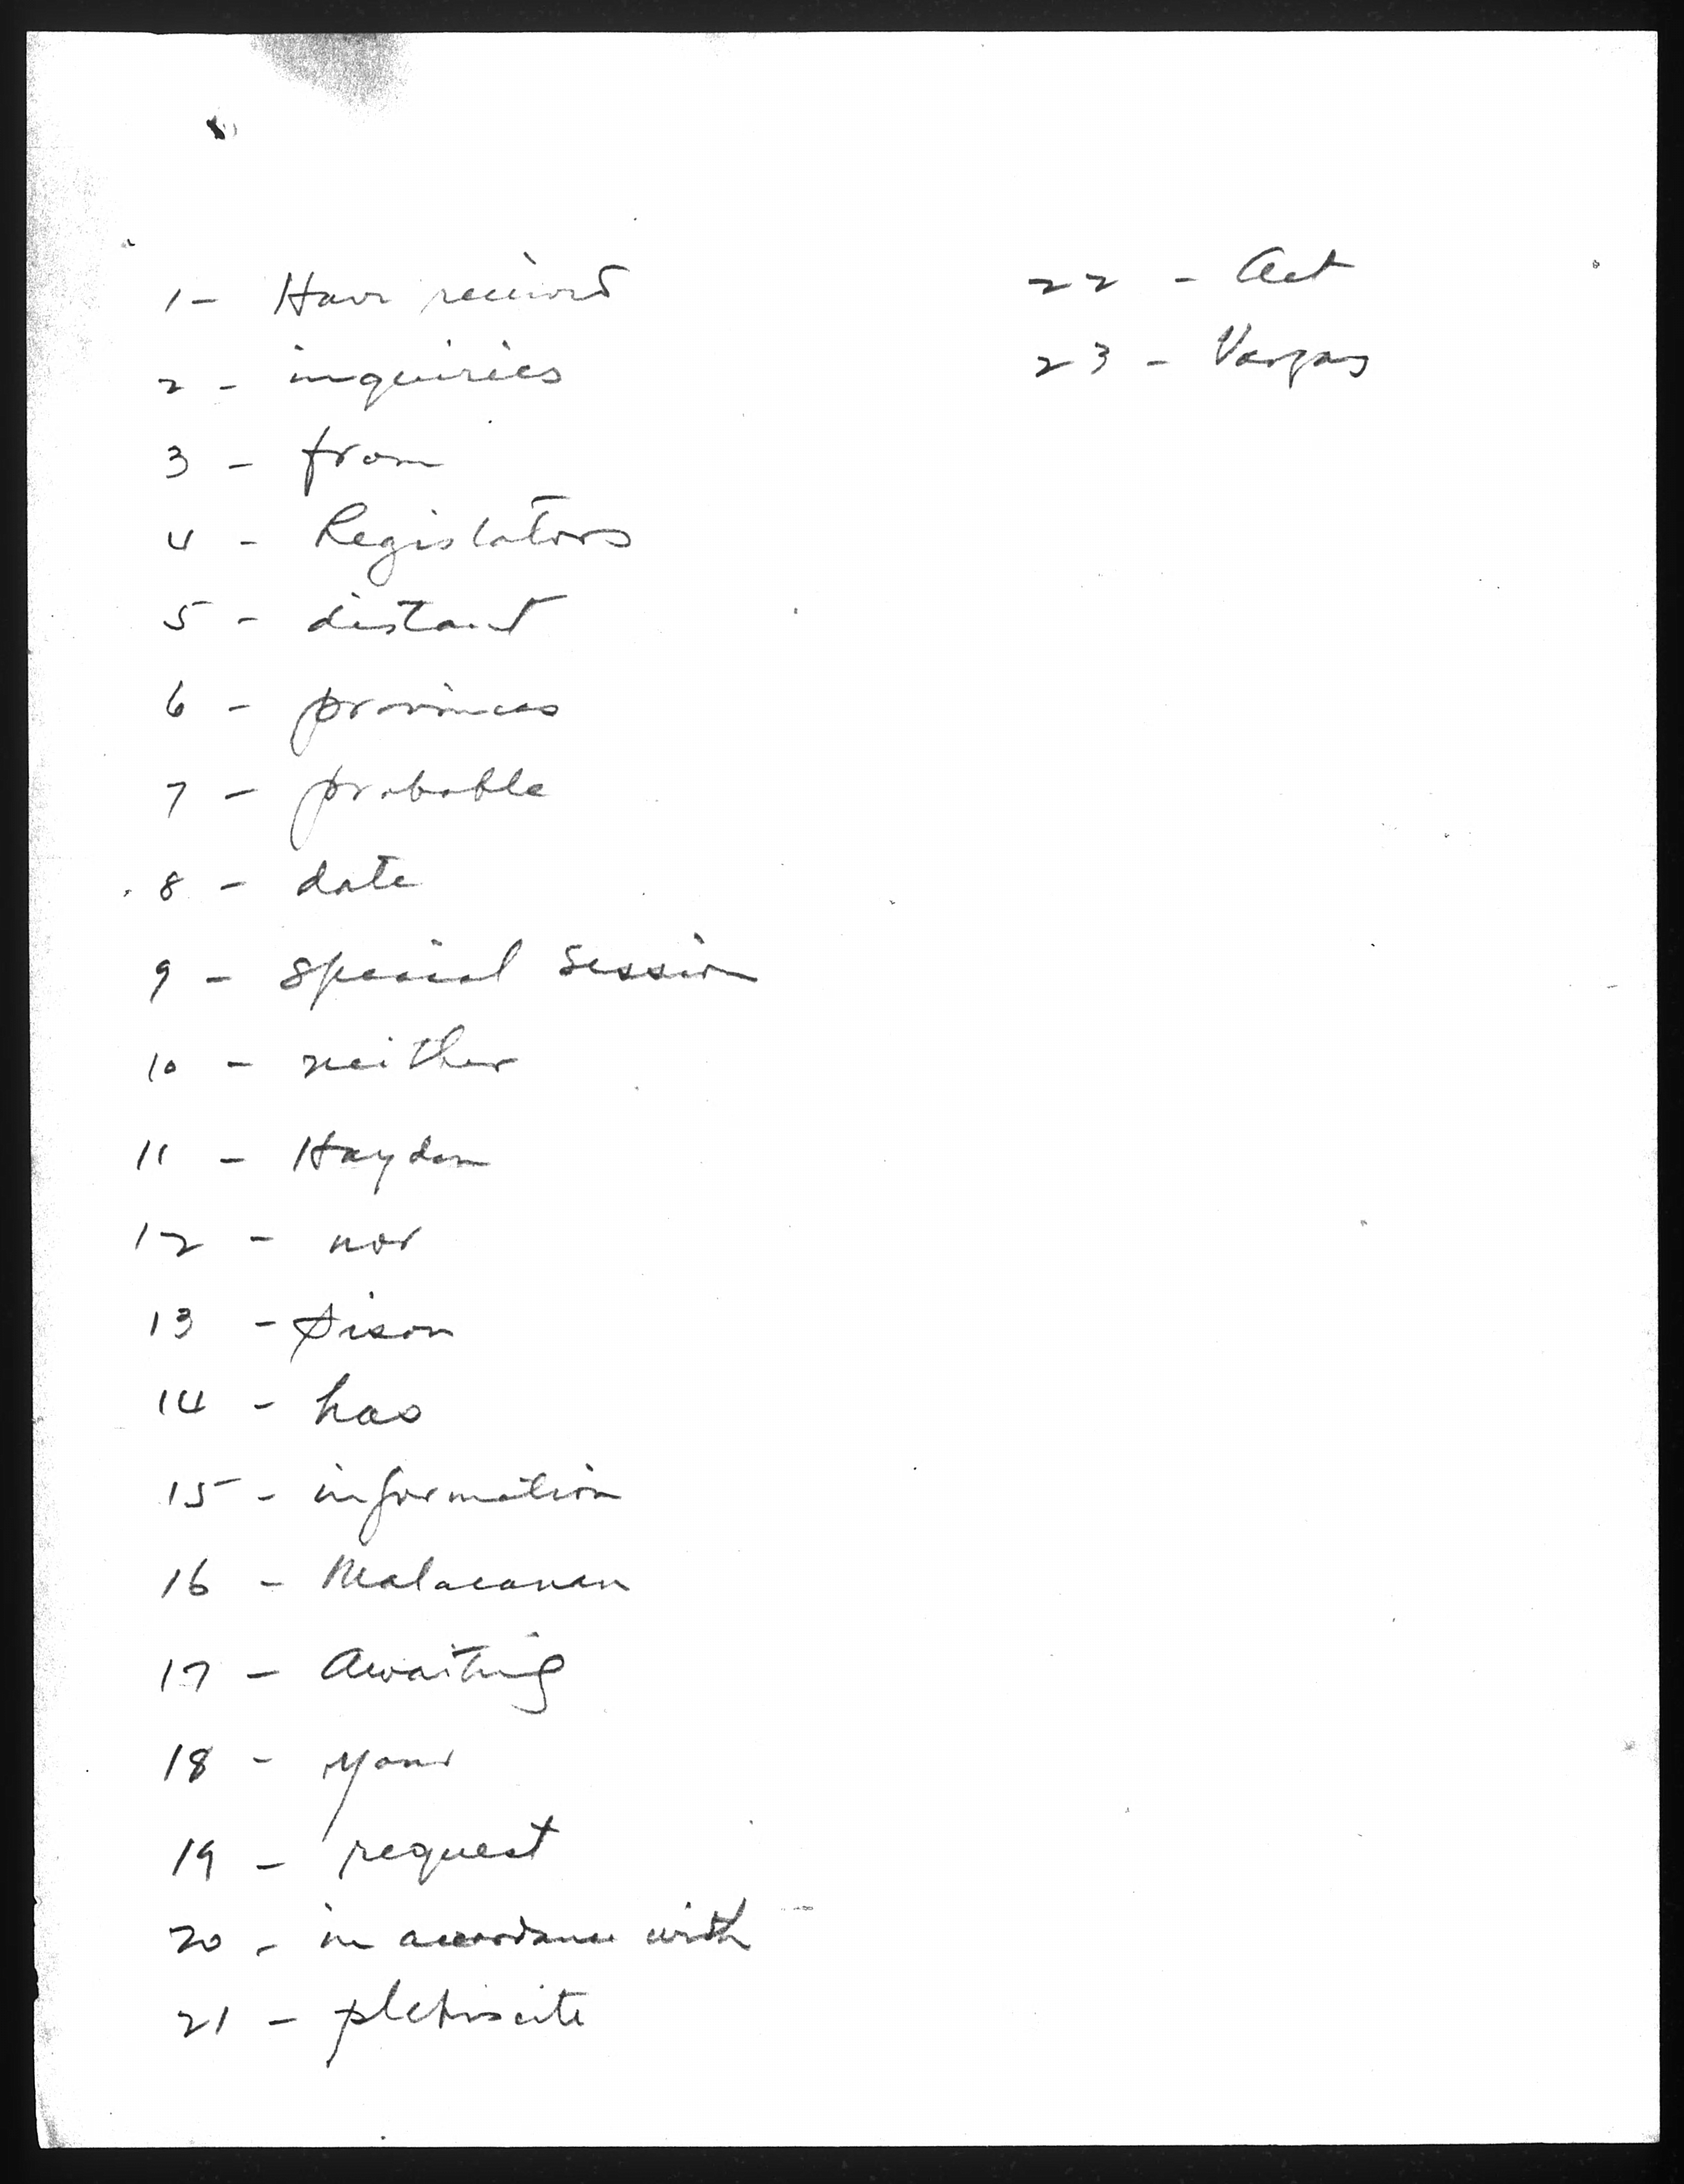 1 - Have received
2 - inquiries
3 - from
4 - Legislators
5 - distant
6 - provinces
7 - probable
8 - date
9 - Special Session
10 - neither
11 - Hayden
12 - nor
13 - Sison
14 - has
15 - information
16 - Malacanan
17 - Awaiting
18 - your
19 - request
20 - in accordance with
21 - plebiscite
22 - Act
23 - Vargas